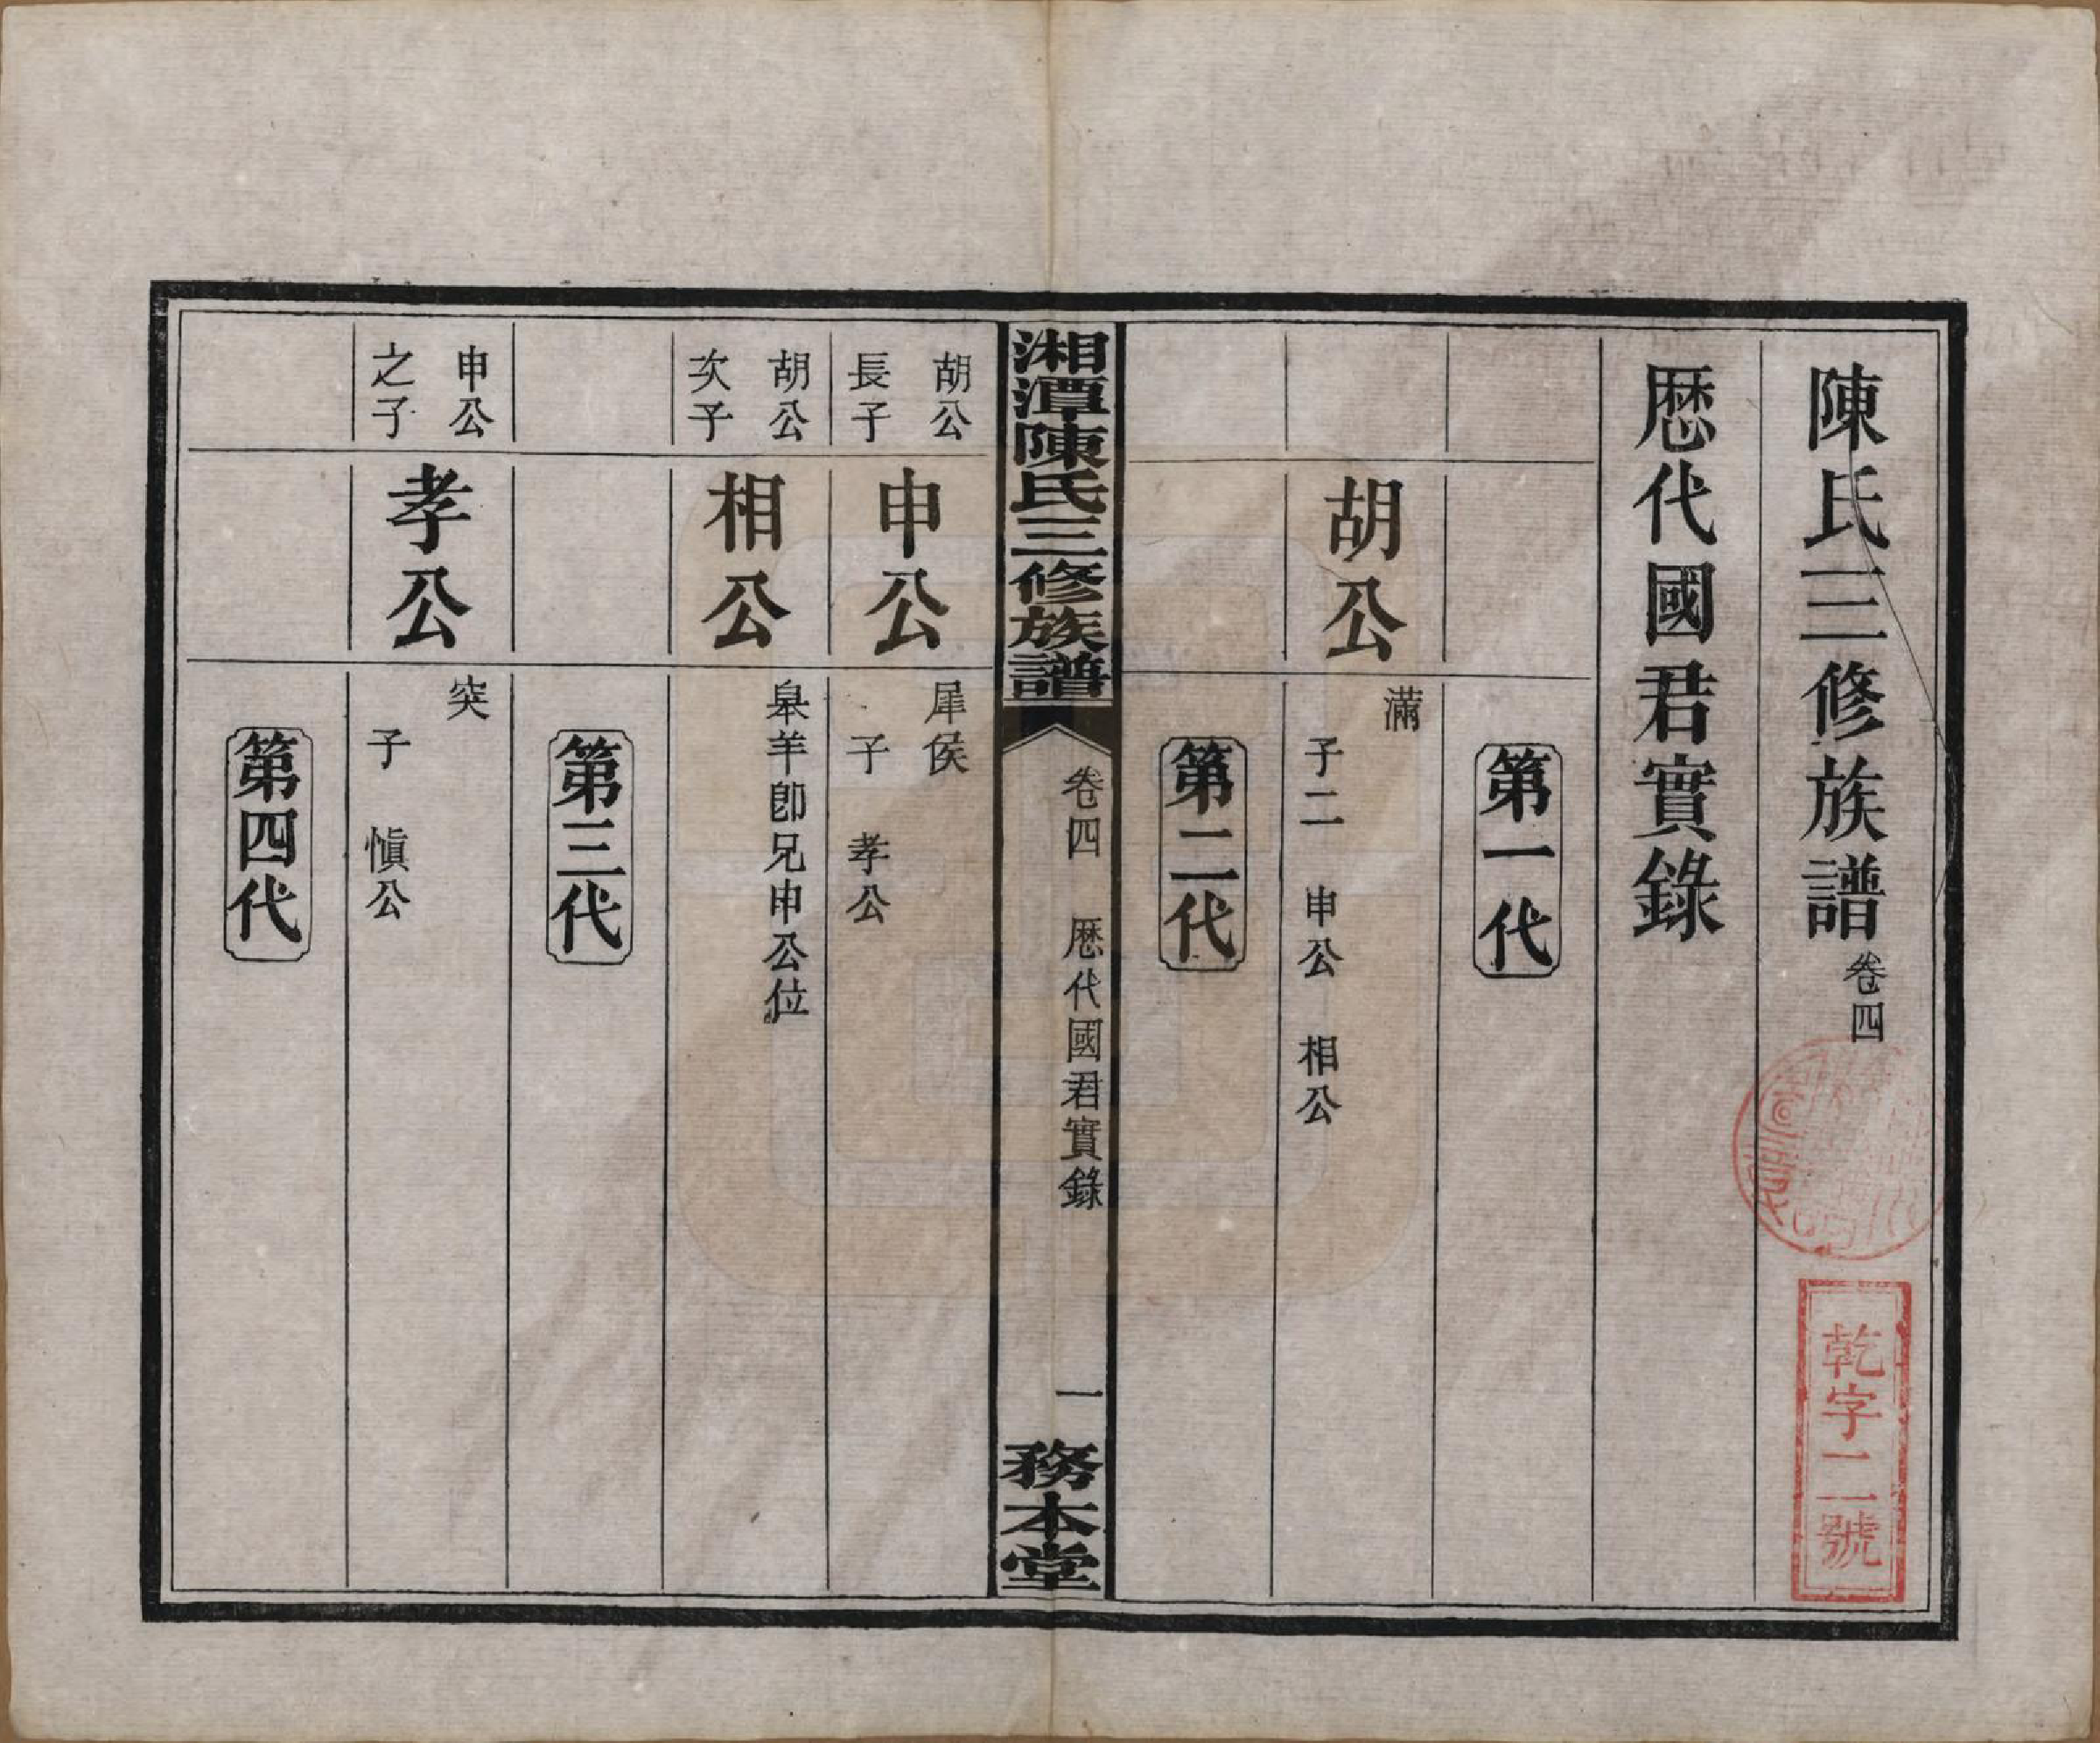 陳氏三修族譜卷四
歴代國君實錄
第一代
胡公
滿
子二 申公 相公
第二代
湘潭陳氏三修族譜
卷四 歴代國君實錄
一
務本堂
胡公
長子
申公
犀侯
子 孝公
胡公
次子
相公
皋羊卽兄申公位
第三代
申公
之子
孝公
突
子 愼公
第四代
乾字二號